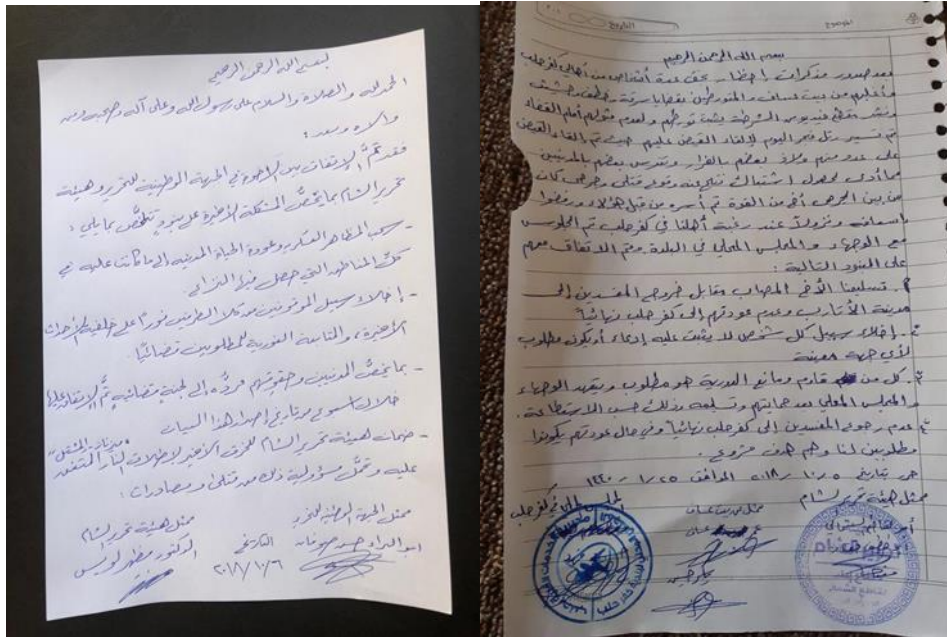 بسم الله الرحمن الرحيم
الحمد لله والصلاة والسلام على رسول الله وعلى آله وصحبه ومن
والاه وبعد:
فقد تمَّ الاتفاق بين الإخوة في الجبهة الوطنية للتحرير وهيئة
تحرير الشام بما يخصُّ المشكلة الأخيرة على بنود تتلخَّص بما يلي:
- سحب المظاهر العسكرية وعودة الحياة المدنية إلى ما كانت عليه في
كلِّ المناطق التي حصل فيها النزاع
- إخلاء سبيل الموقوفين من كلا الطرفين فوراً على خلفية الأحداث
الأخيرة، والمتابعة الفورية للمطلوبين قضائيًا.
- بما يخصُّ المدنيين وحقوقهم مردُّه إلى لجنة قضائية تمَّ الاتفاق عليها
خلال أسبوع من تاريخ إصدار هذا البيان
- ضمان هيئة تحرير الشام للخرق الأخير لإطلاق النار المتفق
عليه وتحمل مسؤولية ذلك من قتلى ومصادرات.
ممثل الجبهة الوطنية للتحرير
حسن صوفان
التاريخ
٢٠١٨/١٠/٦
ممثل هيئة تحرير الشام
الدكتور مظهر لويس
الموضوع
التاريخ
بسم الله الرحمن الرحيم
بعد صدور مذكرات إحضار بحق عدة أشخاص من أهالي كفر حلب
وأغلبهم من بيت عساف والمتورطين بقضايا سرقة وخطف وحشيش
ونشر مقطع فيديو من الشرطة يثبت تورطهم ولعدم مثولهم أمام القضاء
تم تسيير رتل فجر اليوم لإلقاء القبض عليهم حيث تم إلقاء القبض
على عدد منهم ولاذ بعضهم بالفرار وتترس بعضهم بالمدنيين
مما أدى لحصول اشتباك نتج عنه وقوع قتلى وجرحى كان
من بين الجرحى أخ من القوة تم أسره من قبل هؤلاء ورفضوا
إسعافه ونزولاً عند رغبة أهلنا في كفر حلب تم الجلوس
مع الوجهاء والمجلس المحلي في البلدة وتم الاتفاق معهم
على البنود التالية:
١. تسليمنا الأخ المصاب مقابل خروج المفسدين إلى
مدينة الأتارب وعدم عودتهم إلى كفر حلب نهائياً
٢. إخلاء سبيل كل شخص لا يثبت عليه إدعاء أو يكون مطلوب
لأي جهة معينة
٣. كل من قاوم ومانع الدورية هو مطلوب ويتعهد الوجهاء
والمجلس المحلي بعد حمايتهم وتسليمه بذلك حسب الاستطاعة.
٤. عدم رجوع المفسدين إلى كفر حلب نهائياً وفي حال عودتهم يكونوا
مطلوبين لنا وهم هدف مشروع.
حرر بتاريخ ١٠/٥ ٢٠١٨ الموافق ١/٢٥ ١٤٤٠
ممثل هيئة تحرير الشام
ممثل بيت عساف
المجلس المحلي في كفر حلب